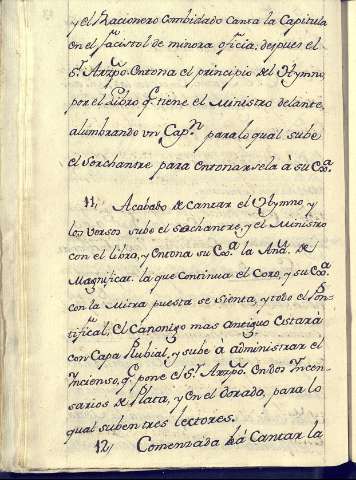 y el Racionero Combidado Canta la Capitula
en el facistol de minora oficia, despues el
S.r Arzpo. Entona el principio del Hymno,
por el Libro q.e tiene el Ministro delante,
alumbrando vn Cap.n para lo qual sube
el Sochantre para entonarsela à su Ex.a
11, Acabado de Cantar el Hymno, y
los versos sube el sochantre, y el Ministro
con el libro, y Entona su Ex.a la Ana. de
Magnificat. la que Continua el Coro, y su Ex.a
con la Mitra puesta se Sienta, y todo el Pon-
tifical, El Canonigo mas antiguo Estará
con Capa Plubial, y sube à administrar el
Incienso, q.e pone el S.r Arzpo. En dos Incen-
sarios de Plata, y en el dorado, para lo
qual suben tres lectores.
12, Comenzada há Cantar la